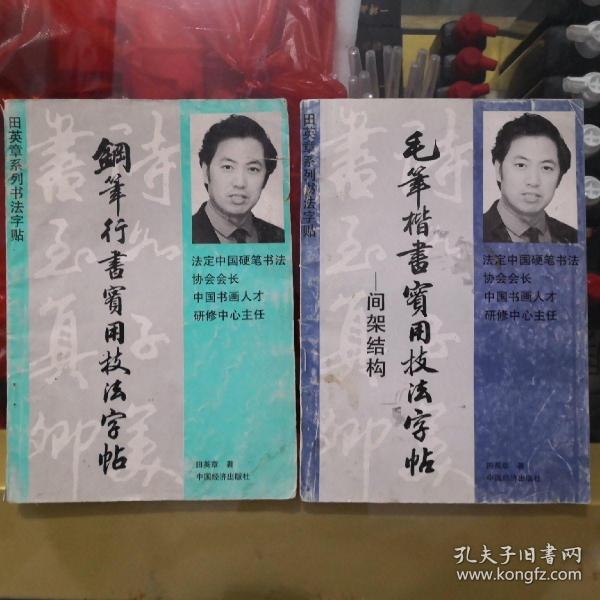 田英章系列书法字贴
鋼筆行書實用技法字帖
法定中国硬笔书法
协会会长
中国书画人才
研修中心主任
田英章 著
中国经济出版社
田英章系列书法字贴
毛筆楷書實用技法字帖
—间架结构
法定中国硬笔书法
协会会长
中国书画人才
研修中心主任
田英章 著
中国经济出版社
孔夫子旧书网
www.kongfz.com